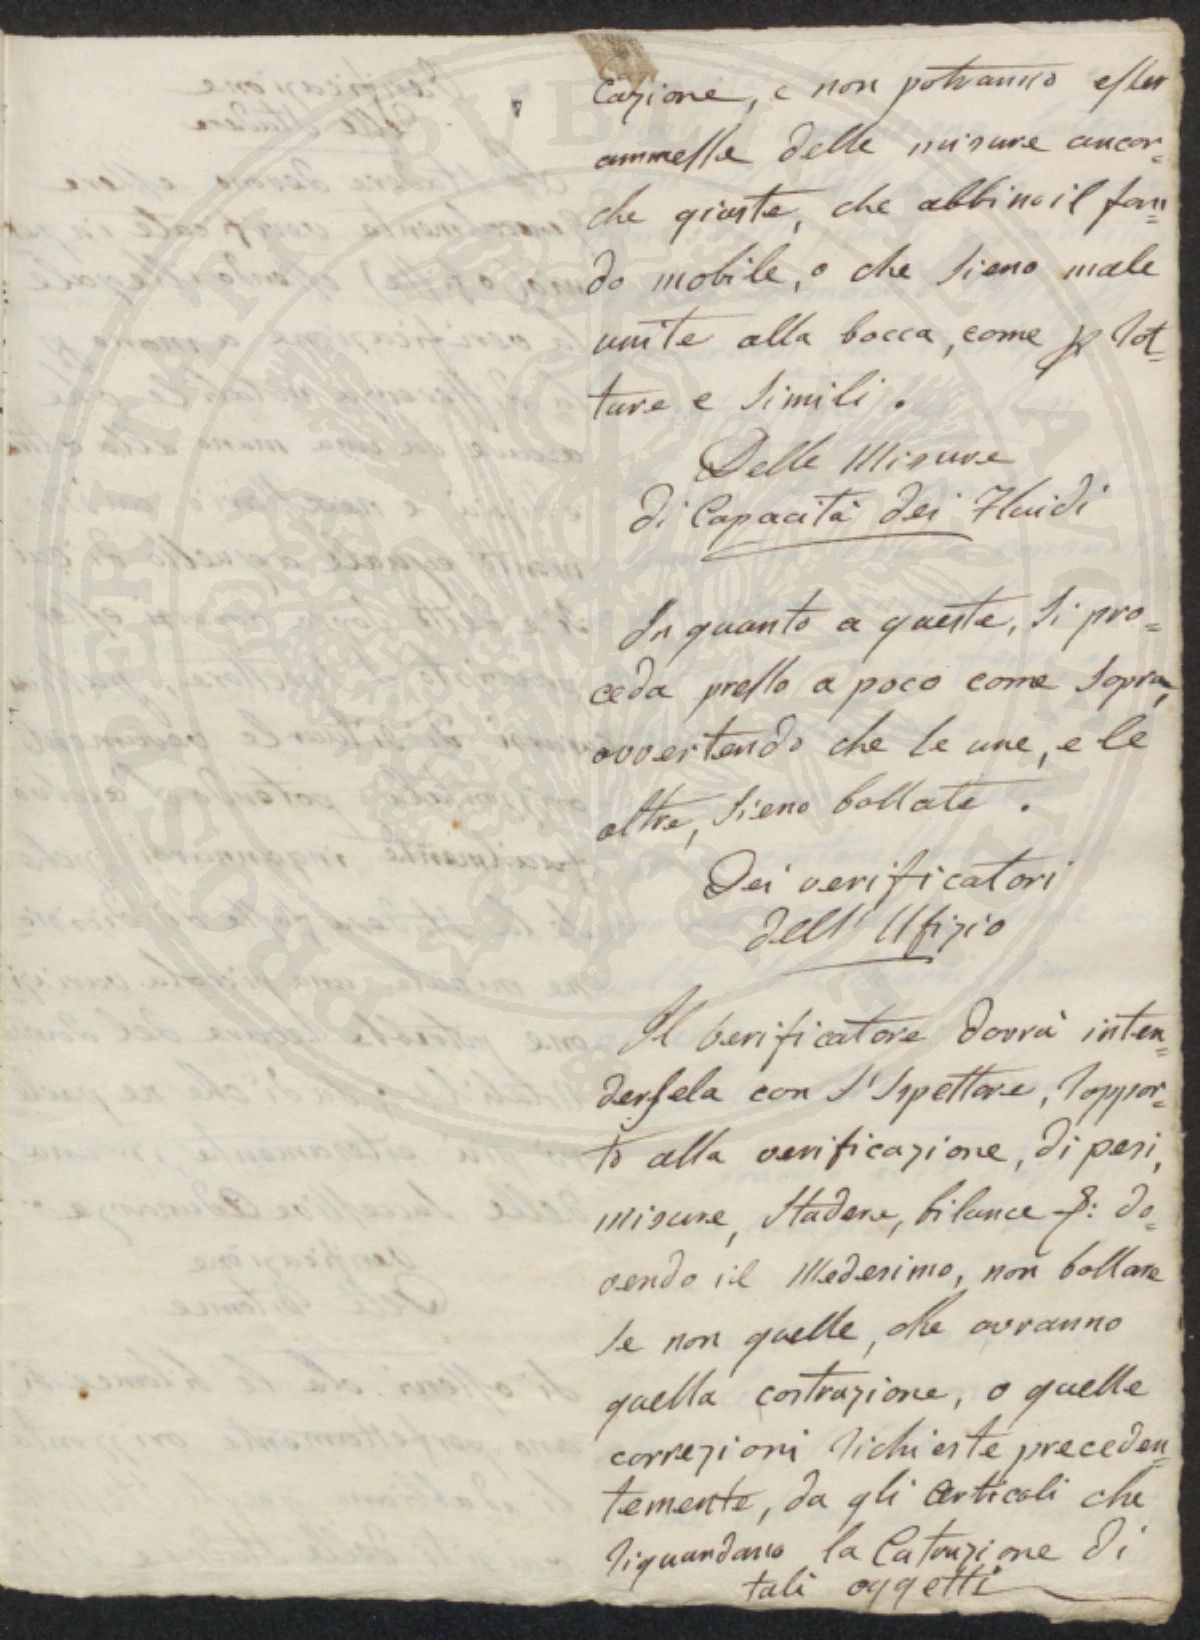 cazione, e non potranno esser
ammesse delle misure ancor=
che giuste, che abbino il fon=
do mobile, o che sieno male
unite alla bocca, come p rot=
ture e simili.
Delle Misure
di Capacità dei Fluidi
In quanto a queste, si pro=
ceda presso a poco come sopra,
avvertendo che le une, e le
altre, sieno bollate.
Dei verificatori
dell' Ufizio
Il verificatore dovrà inten=
dersela con l'Ispettore, rappor=
to alla verificazione, di pesi,
misure, stadere, bilance &: do=
vendo il Medesimo, non bollare
se non quelle, che avranno
quella costruzione, o quelle
correzioni richieste preceden=
temente, da gli articoli che
riguardano la di
tali oggetti